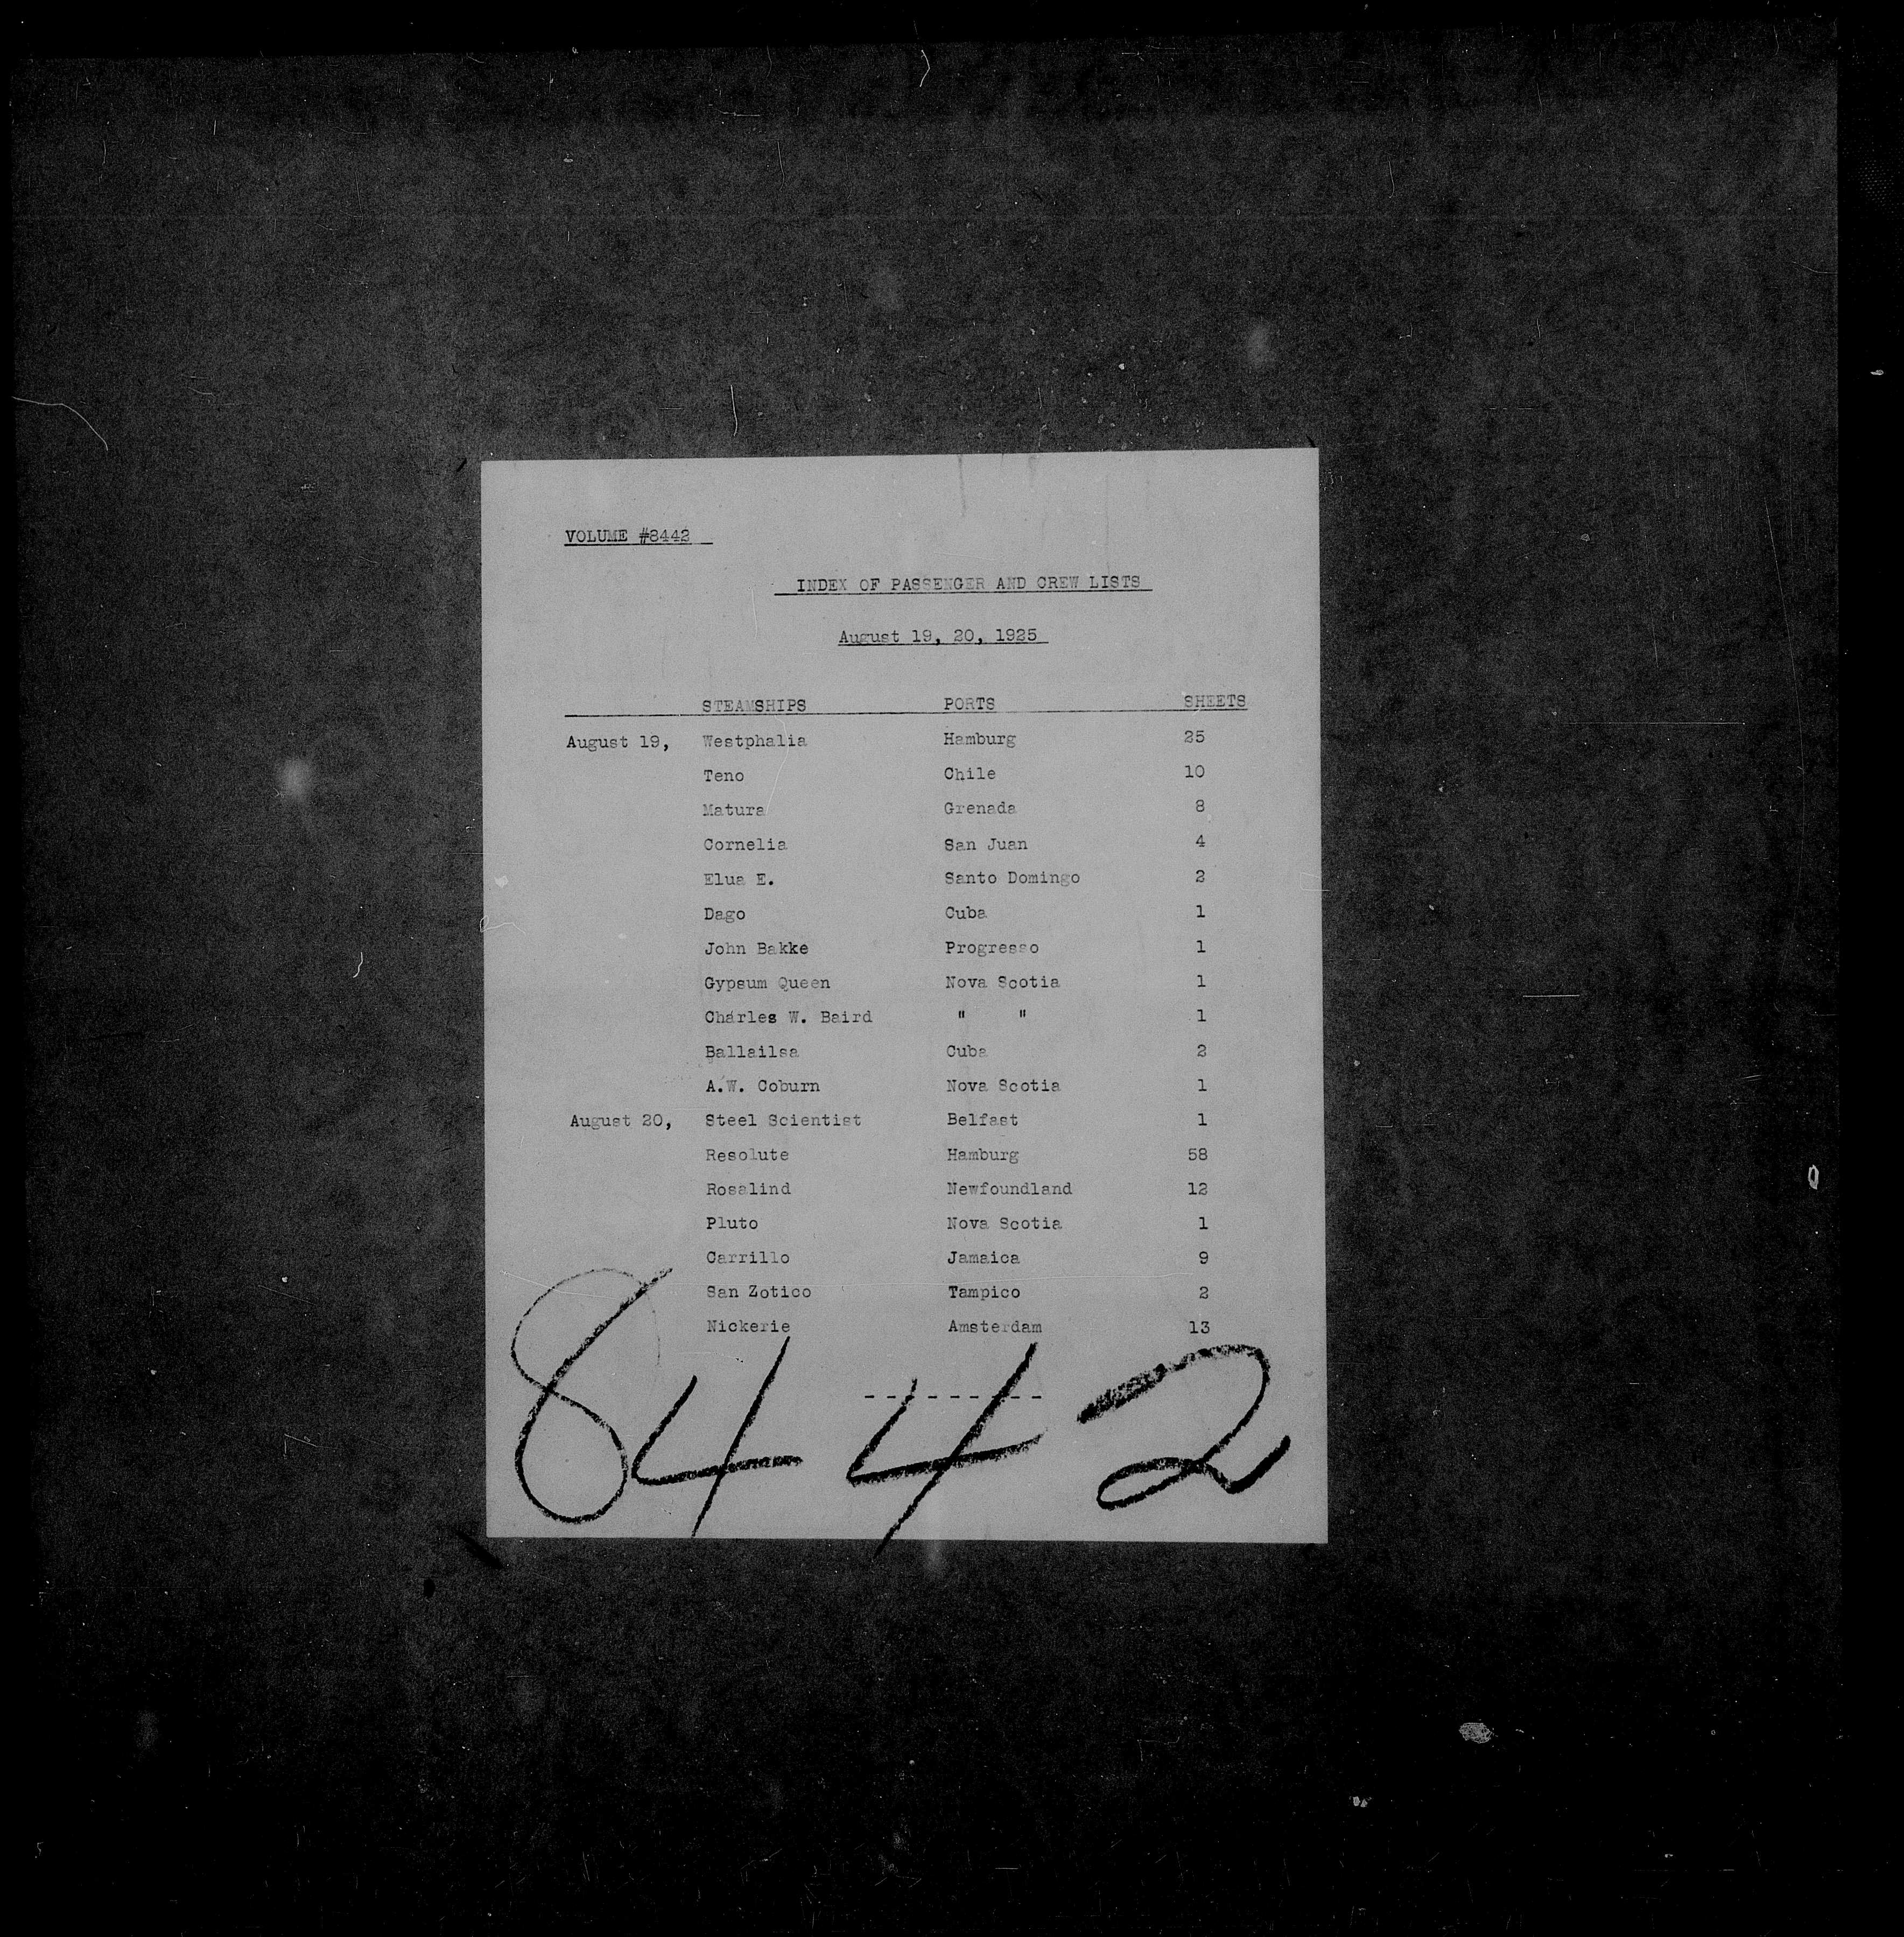 VOLUME #8442
INDEX OF PASSENGER AND CREW LISTS
August 19, 20, 1925
STEAMSHIPS PORTS SHEETS
August 19, Westphalia Hamburg 25
Teno Chile 10
Matura Grenada 8
Cornelia San Juan 4
Elua E. Santo Domingo 2
Dago Cuba 1
John Bakke Progresso 1
Gypsum Queen Nova Scotia 1
Charles W. Baird " " 1
Ballailsa Cuba 2
A.W. Coburn Nova Scotia 1
August 20, Steel Scientist Belfast 1
Resolute Hamburg 58
Rosalind Newfoundland 12
Pluto Nova Scotia 1
Carrillo Jamaica 9
San Zotico Tampico 2
Nickerie Amsterdam 13
- - - - - - - - - - -
8442